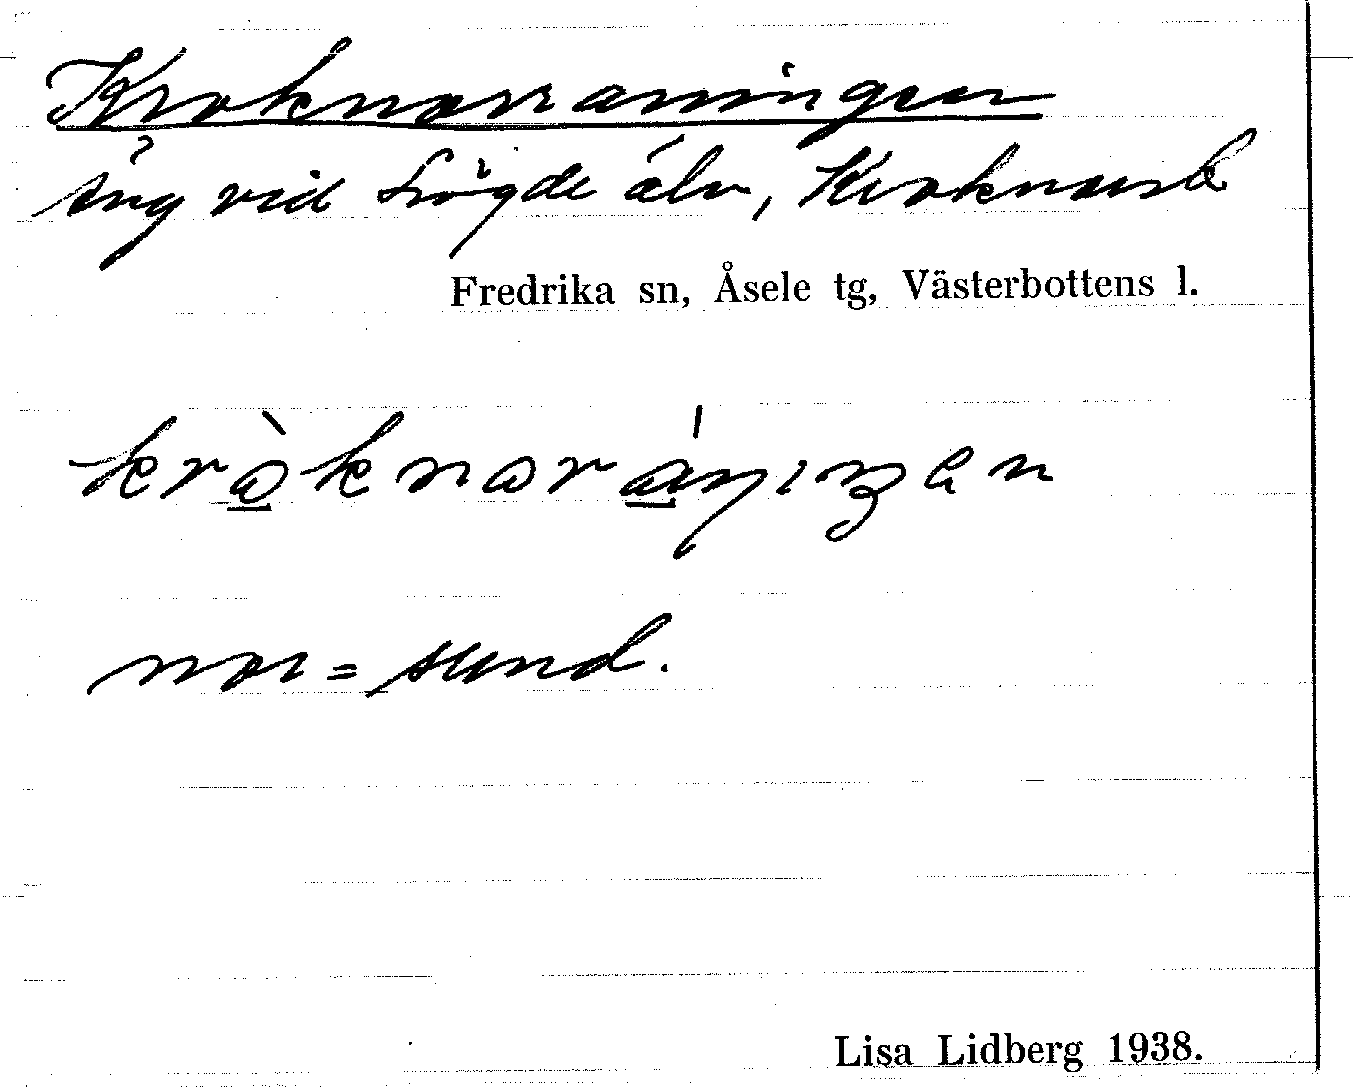 Kroknorraningen
äng vid Lögde älv, Kroknorsb
Fredrika sn, Åsele tg, Västerbottens l.
kròknoráṇıŋen
nor = sund.
Lisa Lidberg 1938.